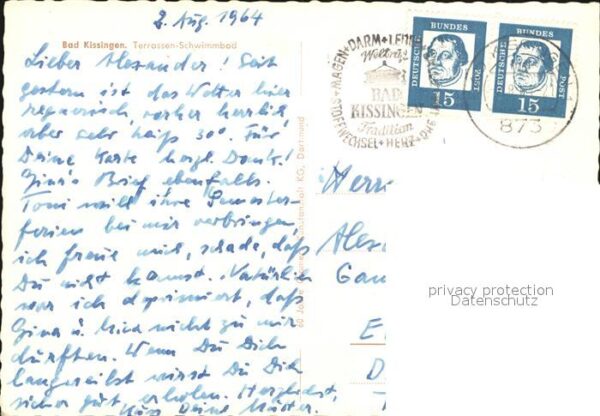 2. Aug. 1964
Bad Kissingen. Terrassen-Schwimmbad
Lieber Alexander! Seit
gestern ist das Wetter hier
regnerisch, vorher herrlich,
aber sehr heiß 30°. Für
Deine Karte herzl. Dank!
Gina's Brief ebenfalls.
Toni will ihre Semester-
ferien bei mir verbringen,
ich freue mich, schade, daß
Du nicht kannst. Natürlich
war ich deprimiert, daß
Gina u. Mica nicht zu mir
durften. Wenn Du Dich
langweilst wirst Du Dich
sicher gut erholen. Herzlichst,
Deine Mutter.
60 Jahre KG, Dortmund
MAGEN + DARM + LEBER
STOFFWECHSEL + HERZ
Weltruf
BAD
KISSINGEN
Tradition
DEUTSCHE BUNDESPOST
15
DEUTSCHE BUNDESPOST
15
873
Herrn
Alex
Gau
E
D
privacy protection
Datenschutz